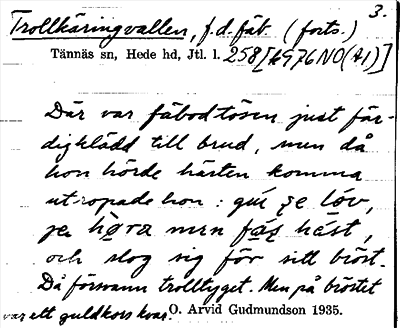 3.
Trollkäringvallen, f.d. fäb. (forts.)
Tännäs sn, Hede hd, Jtl. l. 258 [k976NO(A1)]
Där var fäbodtösen just fär-
digklädd till brud, men då
hon hörde hästen komma
utropade hon: gúi lóv,
hæra men hást,
och slog sig för sitt bröst.
Då försvann trolltyget. Men på bröstet
var ett guldkors kvar.
O. Arvid Gudmundson 1935.